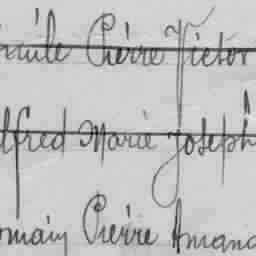 Pierre Victor
lfred Marie Joseph
omain Pierre Amand